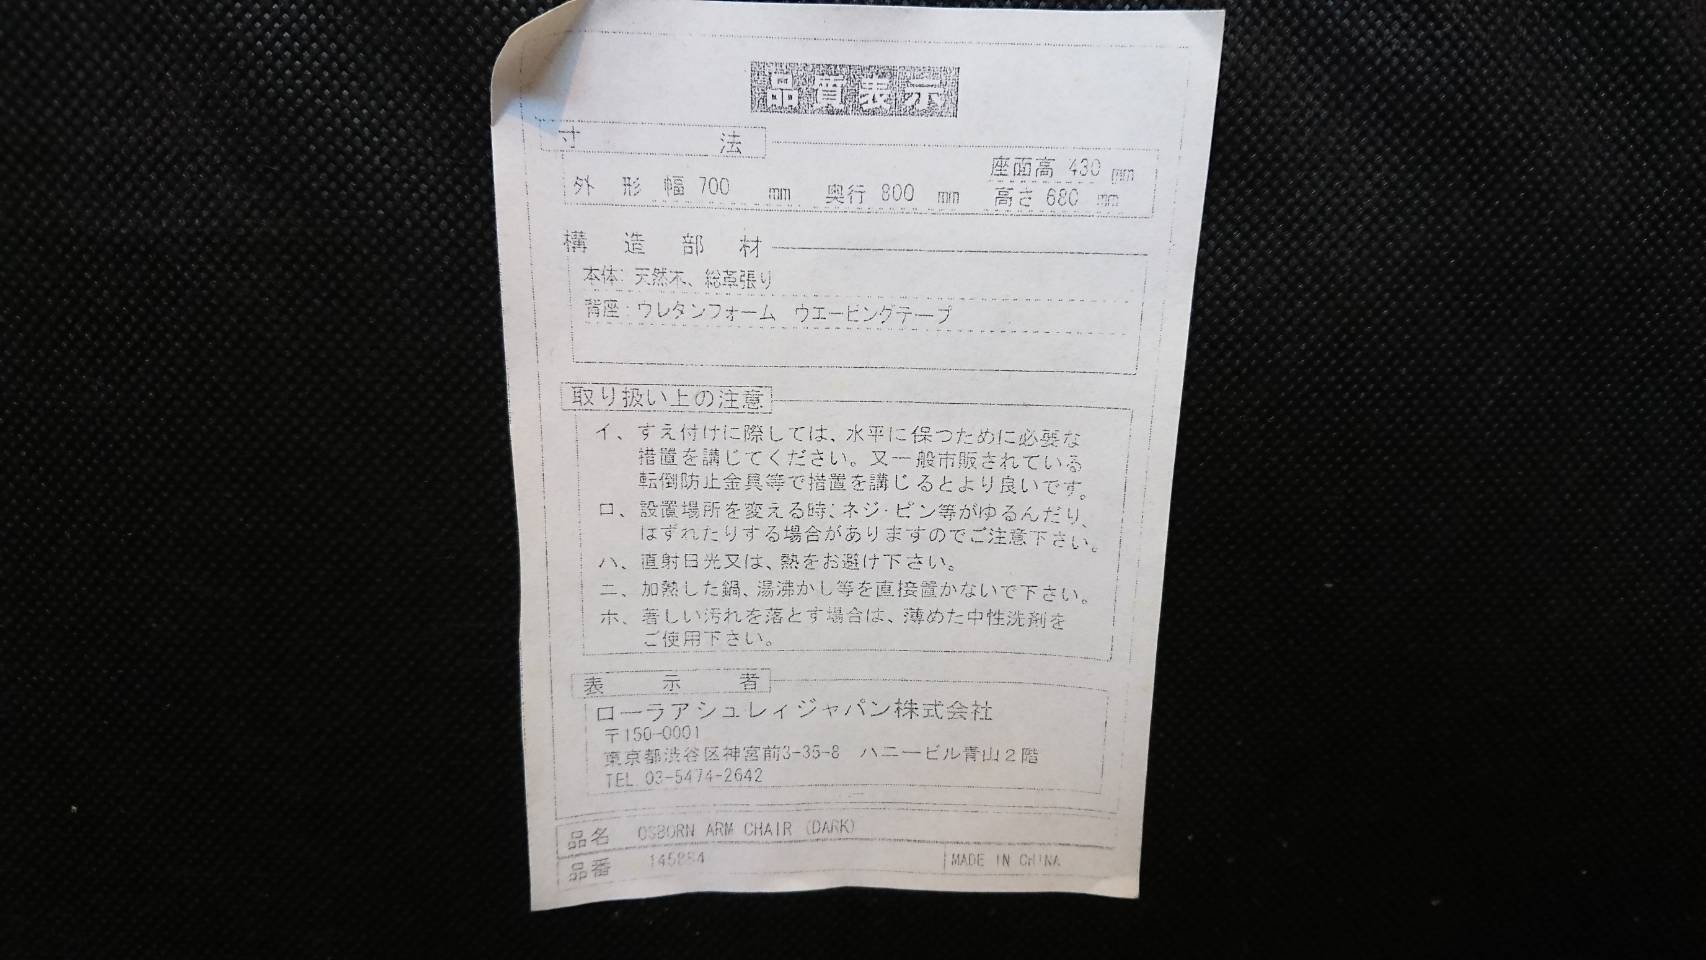 品質表示
寸法
座面高 430 mm
外形 幅 700 mm 奥行 800 mm 高さ 680 mm
構造部材
本体: 天然木、総革張り
背座: ウレタンフォーム ウエービングテープ
取り扱い上の注意
イ、すえ付けに際しては、水平に保つために必要な
措置を講じてください。又一般市販されている
転倒防止金具等で措置を講じるとより良いです。
ロ、設置場所を変える時、ネジ・ピン等がゆるんだり、
はずれたりする場合がありますのでご注意下さい。
ハ、直射日光又は、熱をお避け下さい。
ニ、加熱した鍋、湯沸かし等を直接置かないで下さい。
ホ、著しい汚れを落とす場合は、薄めた中性洗剤を
ご使用下さい。
表示者
ローラアシュレィジャパン株式会社
〒150-0001
東京都渋谷区神宮前3-35-8 ハニービル青山2階
TEL 03-5474-2642
品名 OSBORN ARM CHAIR (DARK)
品番 MADE IN CHINA